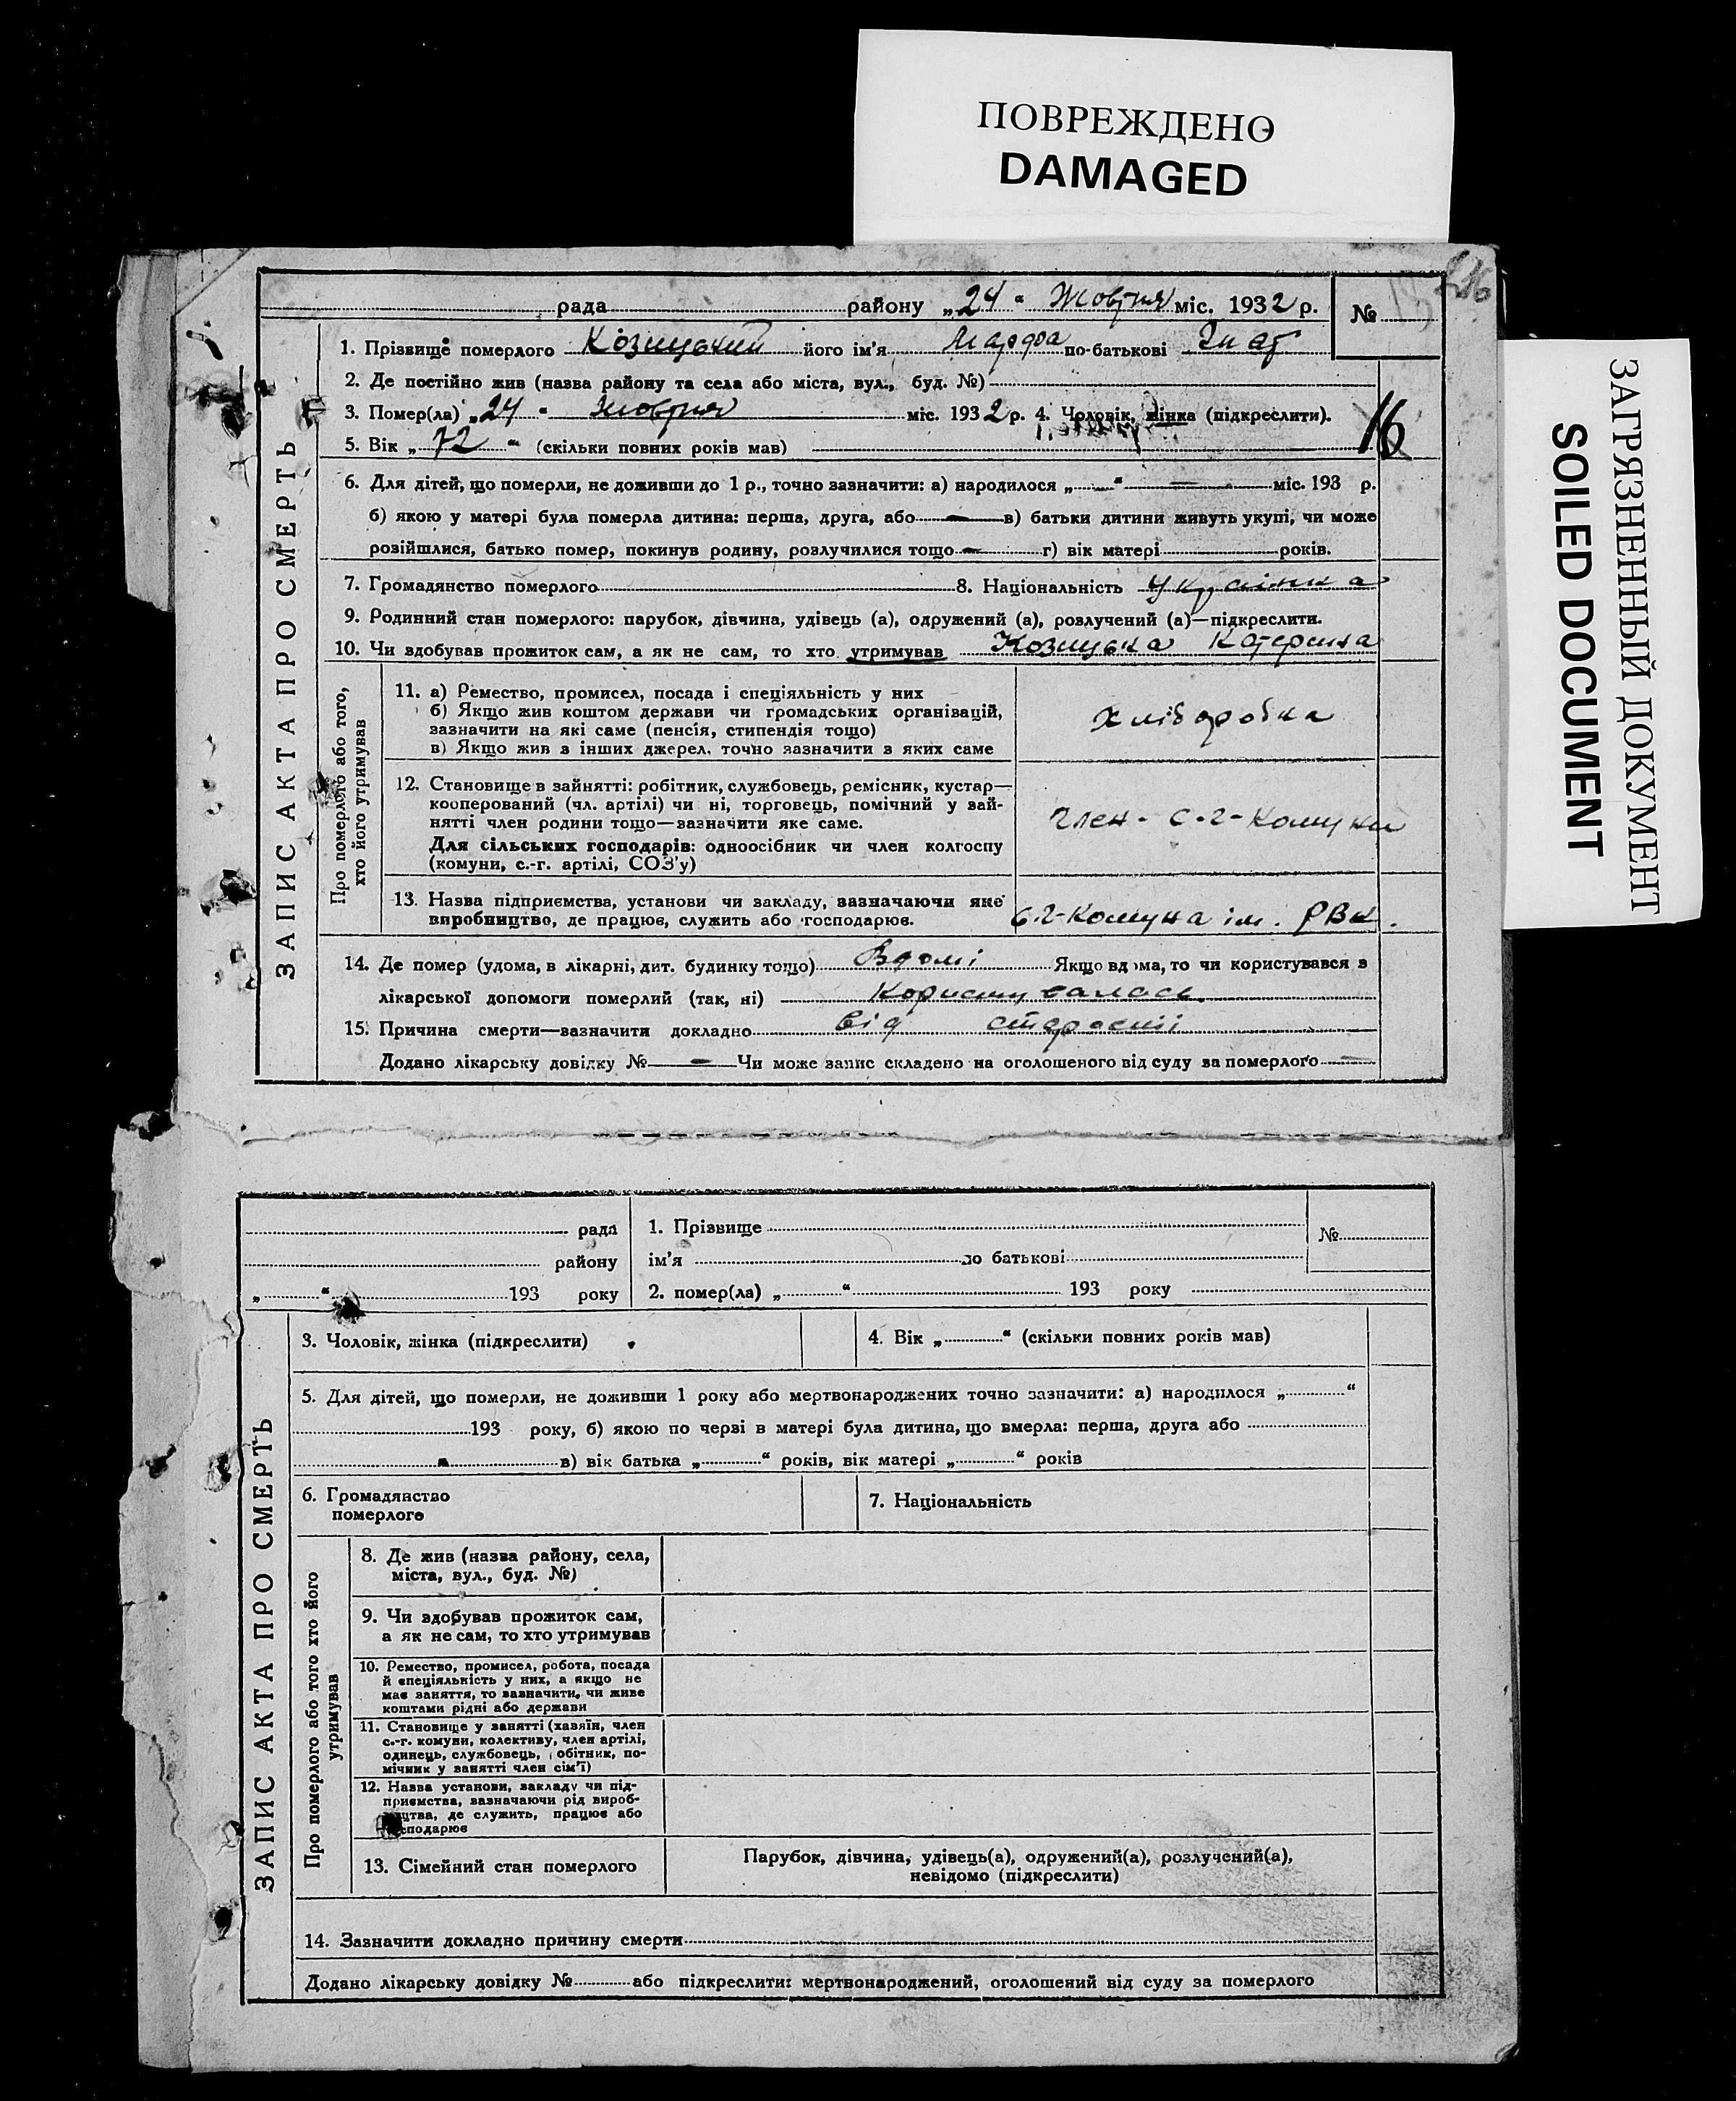 ПОВРЕЖДЕНО
DAMAGED
ЗАГРЯЗНЕННЫЙ ДОКУМЕНТ
SOILED DOCUMENT
рада району „24“ Жовтня міс. 1932 р. №
ЗАПИС АКТА ПРО СМЕРТЬ
1. Прізвище померлого Козицький його ім'я Марфа по-батькові Гнат
2. Де постійно жив (назва району та села або міста, вул., буд. №)
3. Помер(ла) „24“ жовтня міс. 1932 р. 4. Чоловік, жінка (підкреслити).
16
5. Вік „72“ (скільки повних років мав)
6. Для дітей, що померли, не доживши до 1 р., точно зазначити: а) народилося „ “ міс. 193 р.
б) якою у матері була померла дитина: перша, друга, або — в) батьки дитини живуть укупі, чи може
розійшлися, батько помер, покинув родину, розлучилися тощо — г) вік матері років.
7. Громадянство померлого 8. Національність Українка
9. Родинний стан померлого: парубок, дівчина, удівець (а), одружений (а), розлучений (а)—підкреслити.
10. Чи здобував прожиток сам, а як не сам, то хто утримував Козицька Катерина
Про померлого або того, хто його утримував
11. а) Ремество, промисел, посада і спеціяльність у них
б) Якщо жив коштом держави чи громадських організацій,
зазначити на які саме (пенсія, стипендія тощо)
в) Якщо жив з інших джерел, точно зазначити з яких саме
хліборобка
12. Становище в зайнятті: робітник, службовець, ремісник, кустар—
кооперований (чл. артілі) чи ні, торговець, помічний у зай-
нятті член родини тощо—зазначити яке саме.
Для сільських господарів: одноосібник чи член колгоспу
(комуни, с.-г. артілі, СОЗ'у)
Член- с-г-комуни
13. Назва підприємства, установи чи закладу, зазначаючи яке
виробництво, де працює, служить або господарює.
с-г-комуна ім. РВК.
14. Де помер (удома, в лікарні, дит. будинку тощо) Вдомі Якщо вдома, то чи користувався з
лікарської допомоги померлий (так, ні) користувалась
15. Причина смерти—зазначити докладно від старости
Додано лікарську довідку № — Чи може запис складено на оголошеного від суду за померлого —
рада
району
„ “ 193 року
1. Прізвище
ім'я по батькові
2. помер(ла) „ “ 193 року
№
ЗАПИС АКТА ПРО СМЕРТЬ
3. Чоловік, жінка (підкреслити) 4. Вік „ “ (скільки повних років мав)
5. Для дітей, що померли, не доживши 1 року або мертвонароджених точно зазначити: а) народилося „ “
193 року, б) якою по черві в матері була дитина, що вмерла: перша, друга або
в) вік батька „ “ років, вік матері „ “ років
6. Громадянство
померлого
7. Національність
Про померлого або того хто його утримував
8. Де жив (назва району, села,
міста, вул., буд. №)
9. Чи здобував прожиток сам,
а як не сам, то хто утримував
10. Ремество, промисел, робота, посада
й спеціяльність у них, а якщо не
має заняття, то зазначити, чи живе
коштами рідні або держави
11. Становище у занятті (хазяїн, член
с.-г. комуни, колективу, член артілі,
одинець, службовець, робітник, по-
мічник у занятті член сім'ї)
12. Назва установи, закладу чи під-
приємства, зазначаючи рід вироб-
ництва, де служить, працює або
господарює
13. Сімейний стан померлого
Парубок, дівчина, удівець(а), одружений(а), розлучений(а),
невідомо (підкреслити)
14. Зазначити докладно причину смерти
Додано лікарську довідку № або підкреслити: мертвонароджений, оголошений від суду за померлого